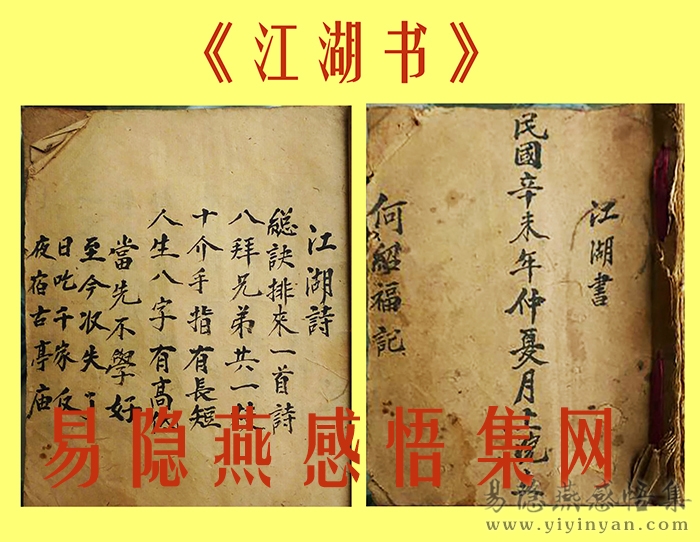 《江湖书》
江湖詩
總訣排來一首詩
八拜兄弟共一
十介手指有長短
人生八字有高
當先不學好
至今收失了
日吃千家反
夜宿古亭庙
江湖書
民國辛未年仲夏月
何紹福記
易隐燕感悟集网
易隐燕感悟集
www.yiyinyan.com